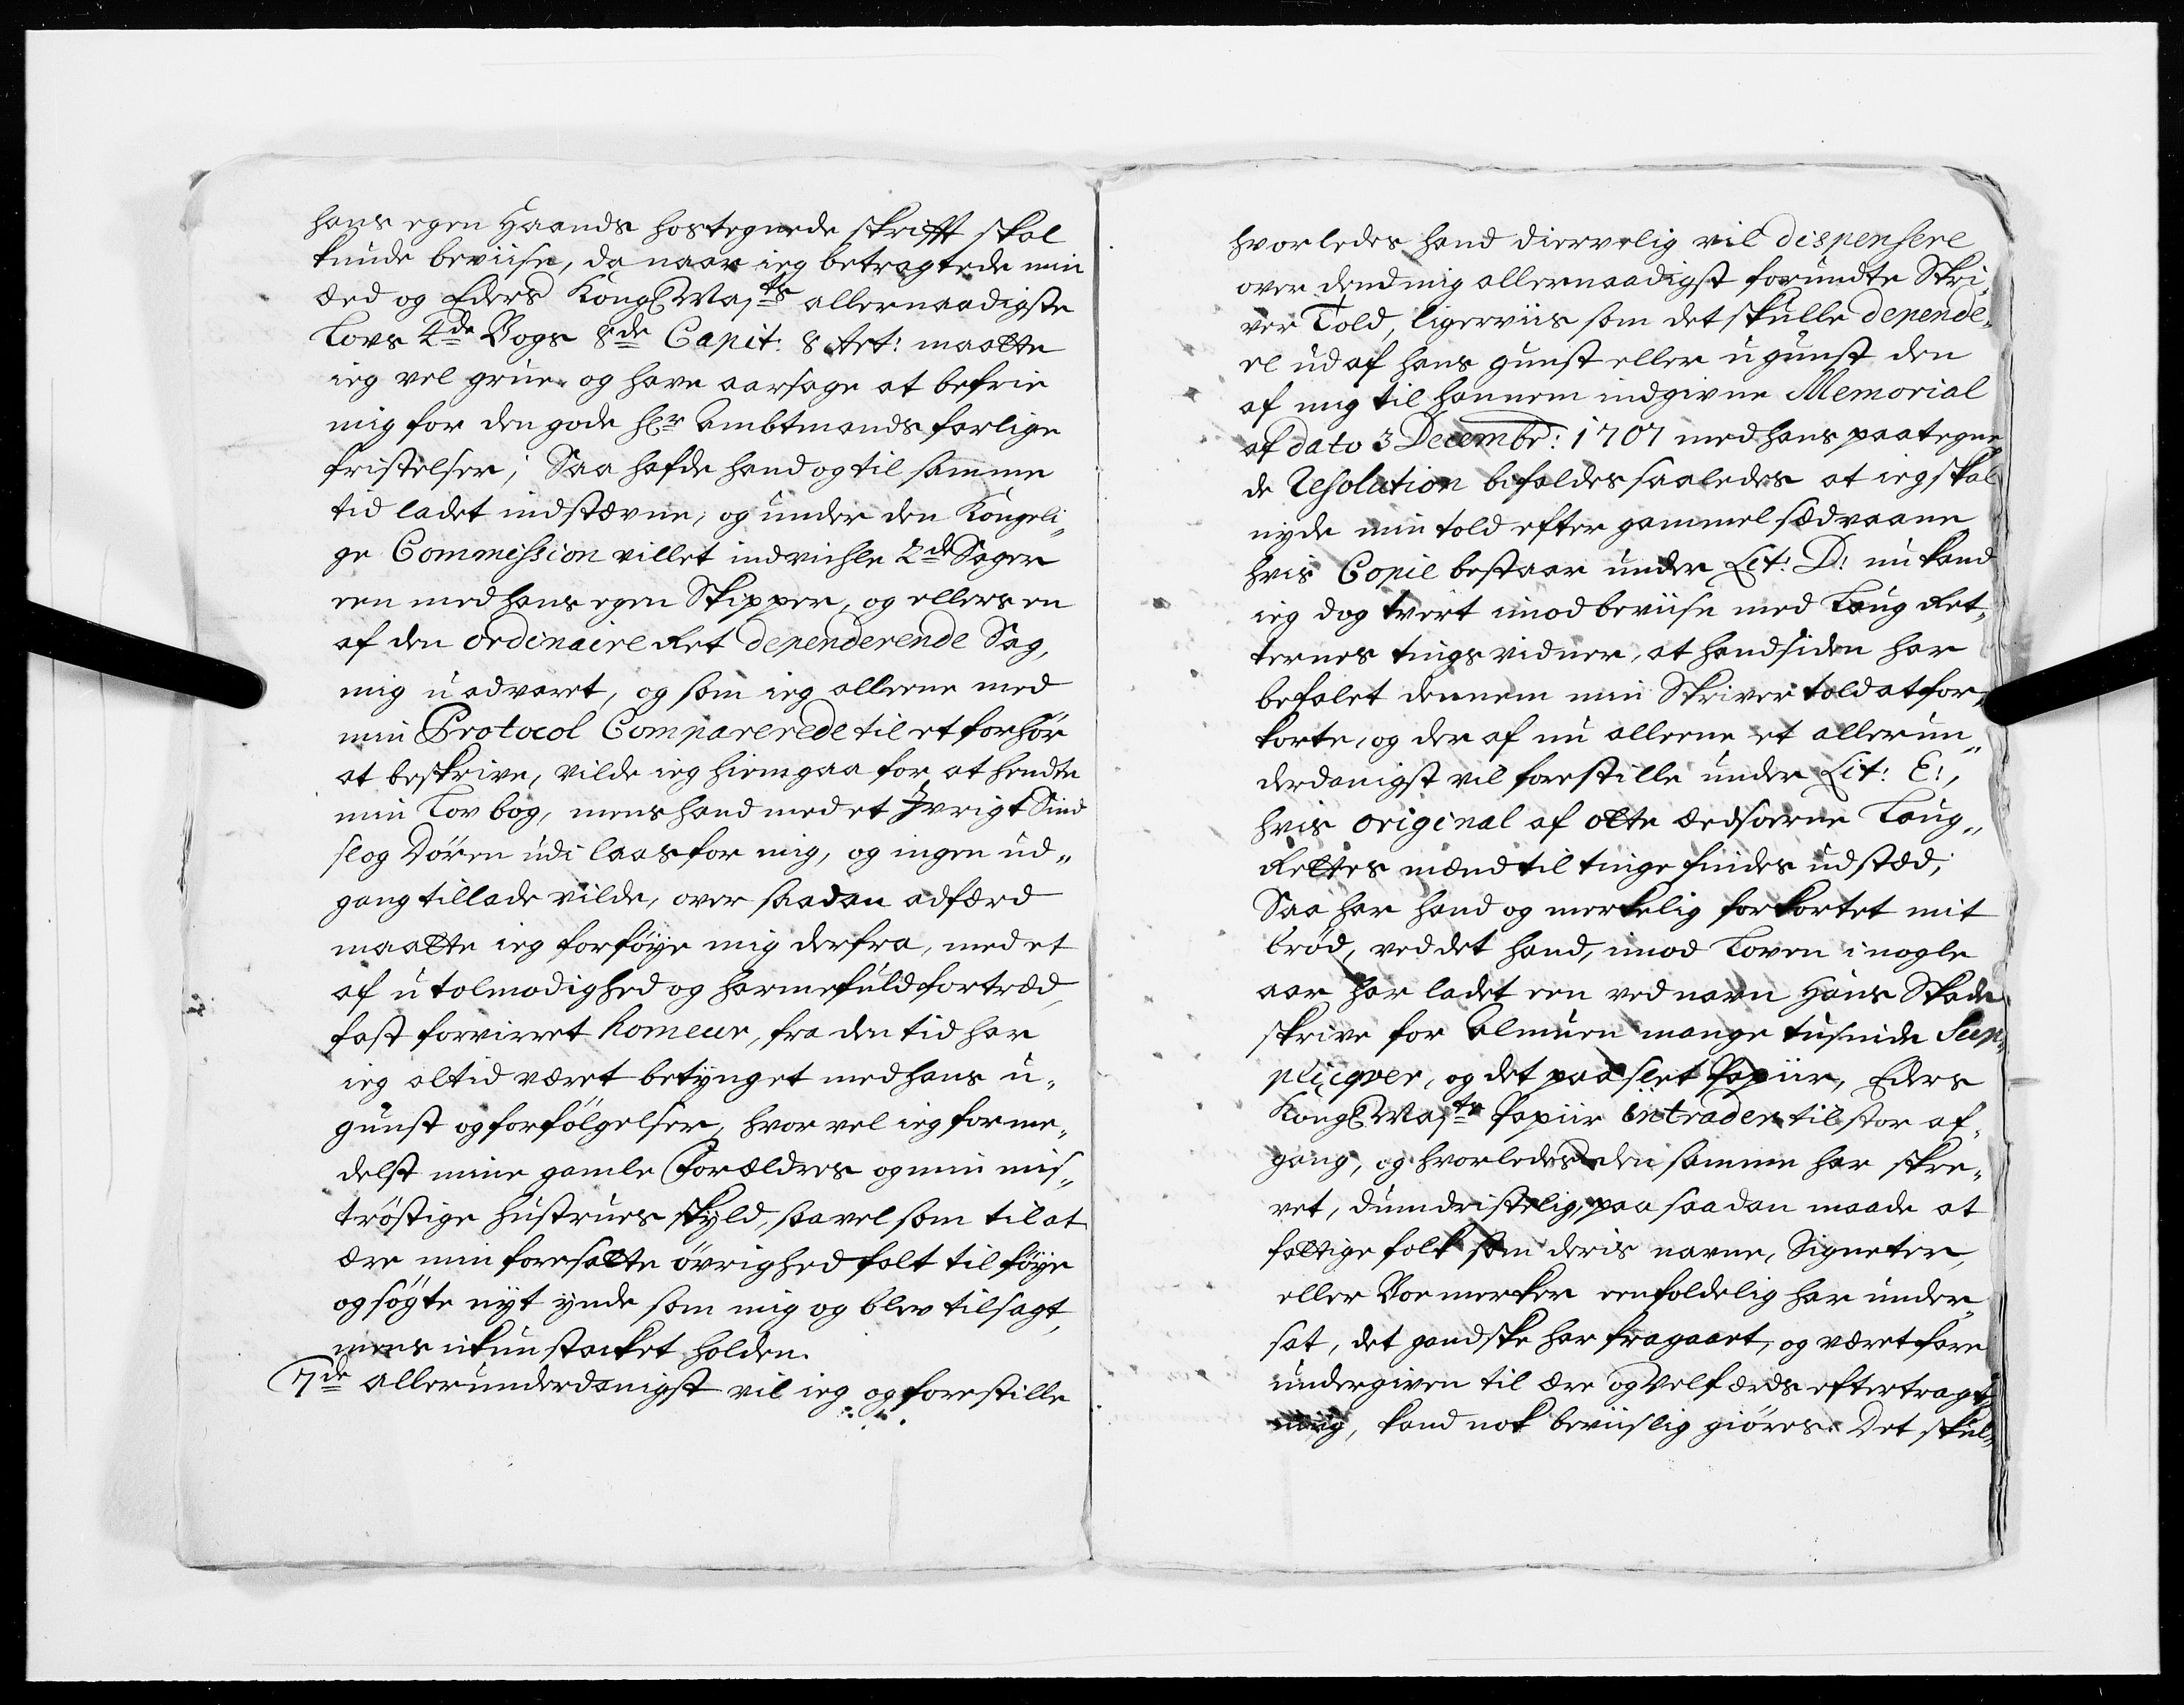 hans egen Haands hostegnede skrifft skal
kunde beviise, da naar ieg betragtede min
æed og Eders Kongl Maj:ts allernaadigste
Lovs 4de Bogs 8de Capit: 8 Art: maatte
ieg vel grue og have aarsage at befrie
mig for den gode Hr Ambtmands farlige
fristelser; Saa hafde hand og til samme
tid ladet indstævne, og under den Kongeli„
ge Commission villet indvichle 2de Sager
een med hans egen Skipper, og ellers en
af den ordinaire Ret dependerende Sag,
mig uadvaret, og som ieg alleene med
min Protocol Comparerede til et forhör
at beskrive, vilde ieg hiemgaa for at hendte
min Lov bog, mens hand med et Ivrigt Sind
slog Dören udi laas for mig, og ingen ud„
gang tillade vilde, over saadan adfærd
maatte ieg forföye mig derfra, med et
af utolmodighed og harmefuld fortræd
fast forvirret homeur, fra den tid har
ieg altid været betynget med hans u„
gunst og forfölgelser, hvor vel ieg forme„
delst mine gamle Forældres og min mis„
tröstige hustrues skyld, saavel som til at
ære min foresatte övrighed falt til föye
og sögte nyt ynde som mig og blev tilsagt,
mens ikun stacket holden.
7de allerunderdanigst vil ieg og forestille
hvorledes hand diervelig vil dispensere
over dend mig allernaadigst forundte Skri„
ver Told, ligerviis som det skulle depende„
re ud af hans gunst eller ugunst den
af mig til hannem indgivne Memorial
af dato 3 Decembr: 1707 med hans paategne„
de Resolution befaldes saaledes at ieg skal
nyde min told efter gammel sædvaane
hvis Copie bestaar under Lit: D: nu kand
ieg dog tvert imod beviise med Laug Ret„
ternes tings vidner, at hand siden har
befalet dennem min Skriver told at for„
korte, og der af nu alleene et allerun„
derdanigst vil forestille under Lit: E:,
hvis original af otte æedsoerne Laug„
Rettes mænd til tinge findes udstæd;
Saa har hand og merkelig forkortet mit
bröd, ved det hand, imod Loven i nogle
aar har ladet een ved navn Hans Skade
skrive for Almuen mange tusinde Sup„
plicqver, og det paa slet Papiir, Eders
Kongl Maj:ts Papiir intrader til stor af„
gang, og hvorledes den samme har skre„
vet, dumdristelig, paa saadan maade at
fattige folk som deris navne, Signeter,
eller Boemerker eenfoldelig har under„
sat, det gandske har fragaaet, og været fare
undergiven til ære og Velfærds eftertragt„
ning, kand nok beviislig giöres. Det skul„